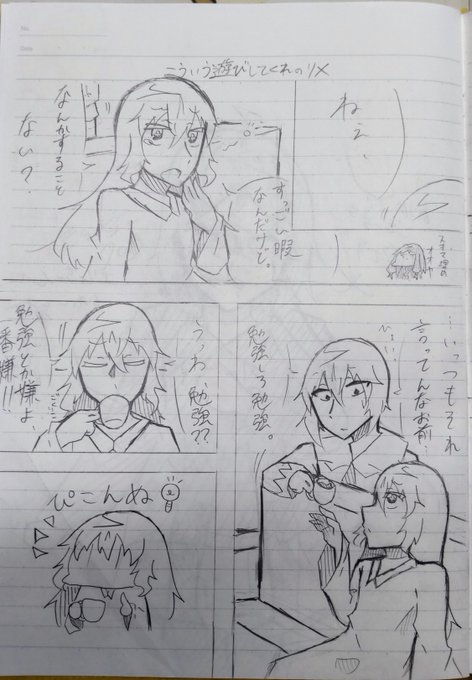 No.
Date
こういう遊びしてくれのリメ
ねぇ、
すっごい暇
なんだけど。
なんかすること
ない？
…いっつもそれ
言ってんなお前…
勉強しろ勉強。
うっわ、勉強??
勉強とか嫌よ、
一番嫌!!
ぴこんぬ